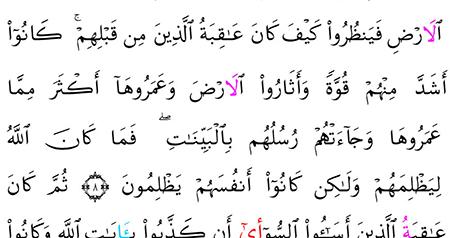 اَ۬لَارْضِ فَيَنظُرُوا۟ كَيْفَ كَانَ عَٰقِبَةُ اُ۬لذِينَ مِن قَبْلِهِمْۖ كَانُوٓا۟
أَشَدَّ مِنْهُمْ قُوَّةٗ وَأَثَارُوا۟ اُ۬لَارْضَ وَعَمَرُوهَآ أَكْثَرَ مِمَّا
عَمَرُوهَا وَجَآءَتْهُمْ رُسُلُهُم بِالْبَيِّنَٰتِۖ فَمَا كَانَ اَ۬للَّهُ
لِيَظْلِمَهُمْ وَلَٰكِن كَانُوٓا۟ أَنفُسَهُمْ يَظْلِمُونَ ٨ ثُمَّ كَانَ
عَٰقِبَةُ اُ۬لذِينَ أَسَٰٓـُٔوا۟ اُ۬لسُّوٓأ۪ىٰٓ أَن كَذَّبُوا۟ بِـَٔايَٰتِ اِ۬للَّهِ وَكَانُوا۟